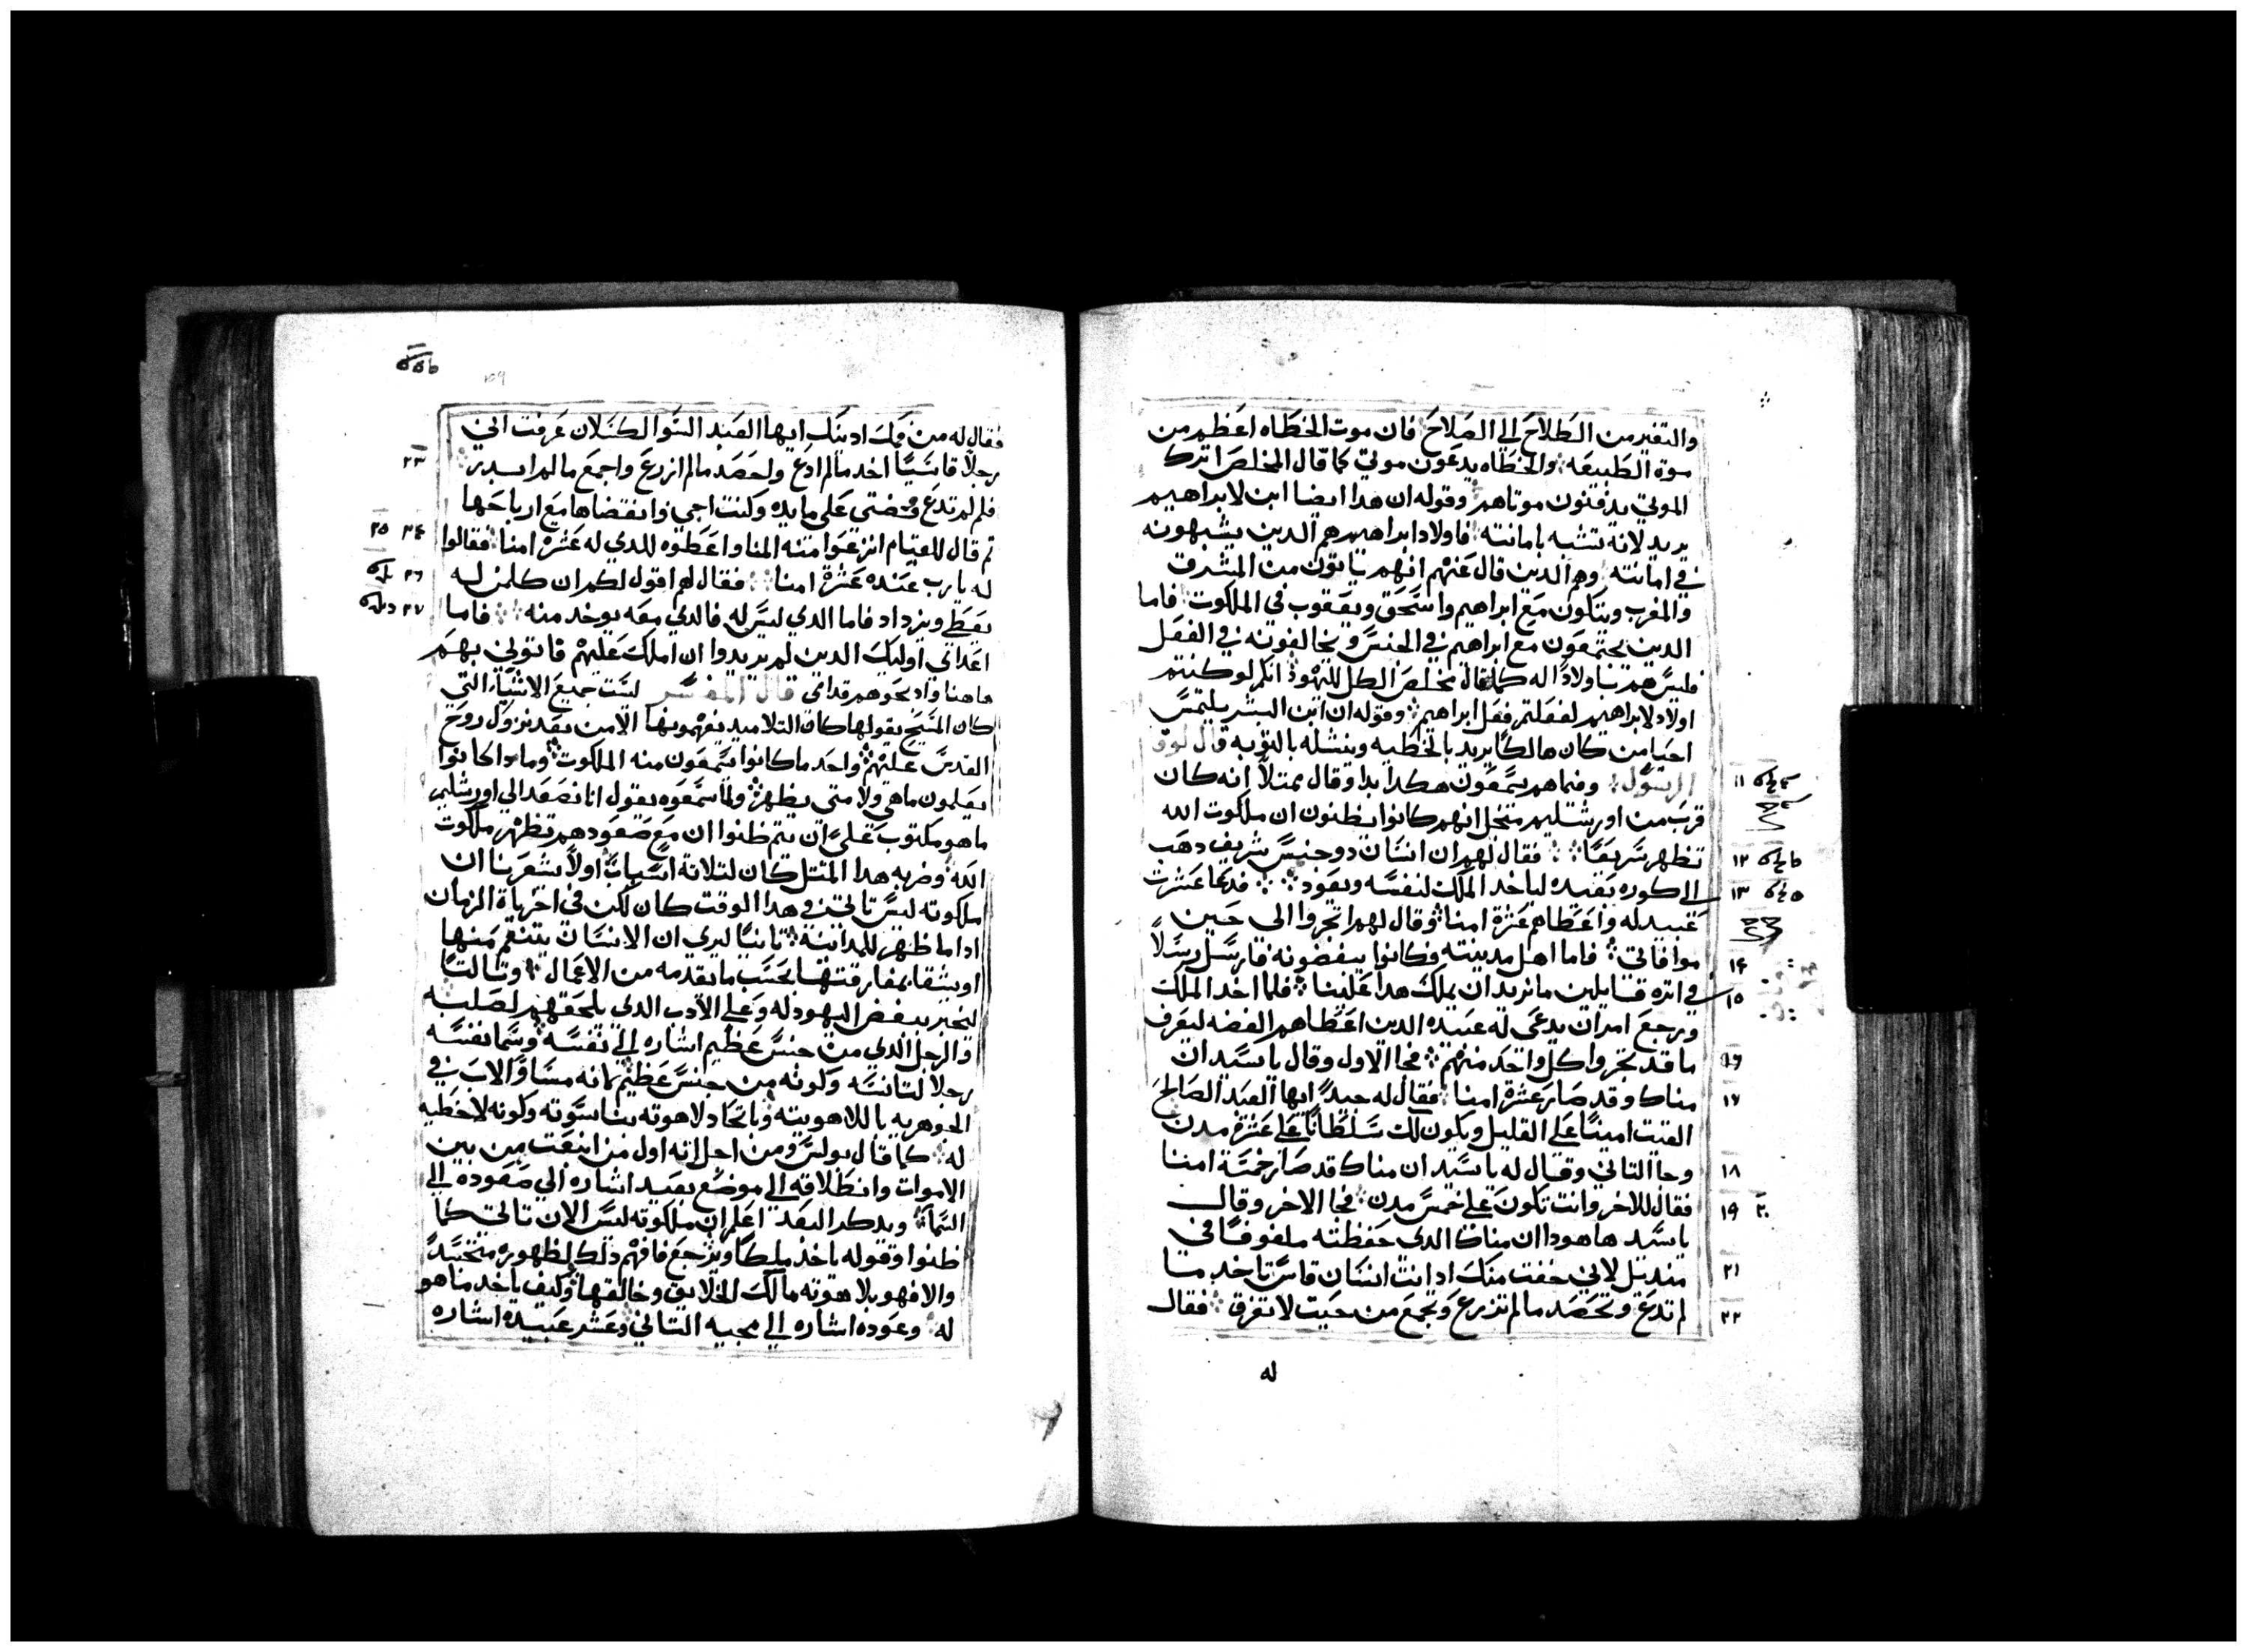 والتغير من الطلاح الى الصلاح فان موت الخطاه اعظم من
موة الطبيعه والخطاه يدعون موتي كما قال المخلص اترك
الموتي يدفنون موتاهم وقوله ان هدا ايضا ابن لابراهيم
يريد لانه تشبه بامانته فاولاد ابراهيم هم الدين يشبهونه
في امانته وهم الدين قال عنهم انهم ياتون من المشرق
والمغرب ويتكون مع ابراهيم واسحق ويعقوب في الملكوت فاما
الدين يجتمعون مع ابراهيم في الجنس ويخالفونه في الفعل
فليس هم باولاد له كما قال مخلص الكل لليهود انكم لو كنتم
اولاد لابراهيم لفعلتم فعل ابراهيم وقوله ان ابن البشر يلتمس
احيا من كان هالكا يريد بالخطيه وينشله بالتوبه قال لوق
الرسول وفيما هم يسمعون هكدا بدا وقال بمتلا انه كان ١١
قرب من اورشليم متخيل انهم كانوا يظنون ان ملكوت الله
تظهر سريعا فقال لهم ان انسان دو جنس شريف دهب ١٢
الى كوره بعيده لياخد الملك لنفسه ويعود فدعا عشرة ١٣
عبيد له واعطاهم عشرة امنا وقال لهم اتجروا الى حين
موافاتي فاما اهل مدينته فكانوا يبغضونه فارسل رسلا ١٤
في اتره قايلين ما نريد ان يملك هدا علينا فلما اخد الملك ١٥
ورجع امر ان يدعى له عبيده الدين اعطاهم الفضه ليعرف
ما قد تجروا كل واحد منهم فجا الاول وقال يا سيد ان ١٦
مناك وقد صار عشرة امنا فقال له جيدا ايها العبد الصالح ١٧
الفيت امينا على القليل ويكون لك سلطانا على عشرة مدن
وجا التاني وقال له يا سيد ان مناك قد صار خمسة امنا ١٨
فقال للاخر وانت تكون على خمس مدن فجا الاخر وقال ١٩ ٢٠
يا سيد هاهودا ان مناك الدي حفظته ملفوفا في
منديل لاني خفت منك اد انت انسان قاس تاخد ما ٢١
لم تدع وتحصد ما لم تزرع وتجمع من حيت لا تفرق فقال ٢٢
له
فقال له من فمك ادينك ايها العبد السو الكسلان عرفت اني
رجلا قاسيا اخد مالم ادع واحصد مالم ازرع واجمع مالم ابدر ٢٣
فلم لم تدع فضتي على مايده وكنت اجي وانتقضاها مع ارباحها
تم قال للقيام انزعوا منه المنا واعطوه للدي له عشرة امنا فقالوا ٢٤ ٢٥
له يا رب عنده عشرة امنا فقال لهم اقول لكم ان كلمن له ٢٦
يعطى ويزداد فاما الدي ليس له فالدي معه يوخد منه فاما ٢٧
اعداتي اوليك الدين لم يريدوا ان املك عليهم فاتوني بهم
هاهنا وادبحوهم قدامي قال المفسر ليست جميع الاشياء التي
كان المسيح يقولها كان التلاميد يفهمونها الا من بعد نزول روح
القدس عليهم واحد ما كانوا يسمعون منه الملكوت وما كانوا
يعلمون ماهي ولا متى يظهر ولما سمعوه يقول انا نصعد الى اورشليم
ما هو مكتوب علي ان يتم ظنوا ان مع صعودهم تظهر ملكوت
الله وضربه هدا المتل كان لتلاتة اسباب اولا يشعرنا ان
ملكوته ليس تاتي في هدا الوقت كان لكن في اخرياة الزمان
ادا ما ظهر للمداينة تانيا ليري ان الانسان يتنعم منها
او يشقا بمفارقتها بحسب ما يقدمه من الاعمال وتالتا
ليخبر ببغض اليهود له وعلى الادب الدي يلحقهم لصلبه
والرجل الدي من جنس عظيم اشاره الى نفسه وسما نفسه
رجلا لتانسه وكونه من جنس عظيم لانه مساو الاب في
الجوهريه باللاهويته وباتحاد لاهوته بناسوته وكونه لا خطيه
له كما قال بولس ومن اجل انه اول من انبعت من بين
الاموات وانطلاقه الى موضع بعيد اشاره الى صعوده الى
السماء وبدكر البعد اعلم ان ملكوته ليس الان تاتي كما
ظنوا وقوله ياخد ملكا ويرجع فافهم دلك لظهوره متجسدا
والا فهو بلاهوته مالك الخلايق وخالقها وكيف ياخد ما هو
له وعوده اشاره الى مجيه التاني وعشر عبيده اشاره